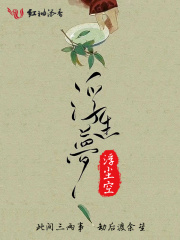 红袖添香
浮生梦
浮尘空
此间三两事 劫后渡余生